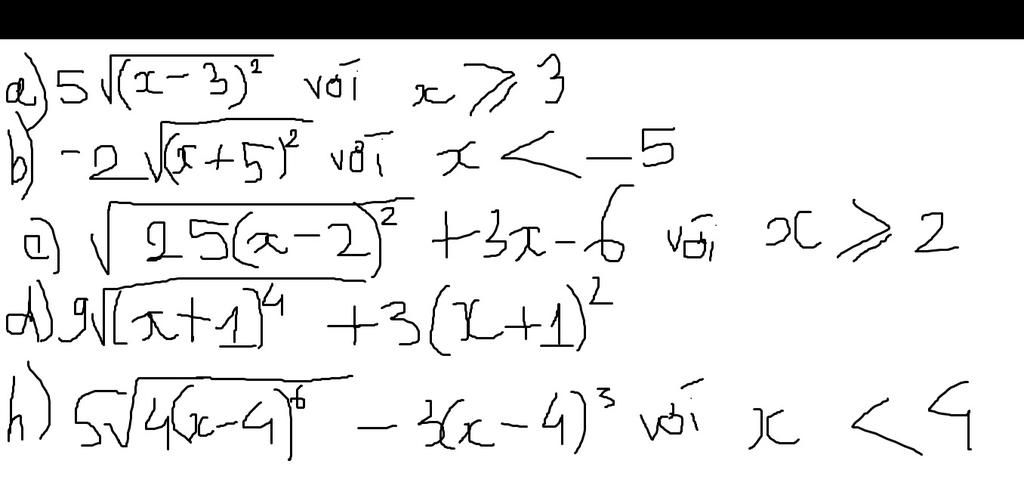 a) 5√(x-3)² với x ≥ 3
b) -2√(x+5)² với x < -5
c) √25(x-2)² +3x-6 với x ≥ 2
d) 9√(x+1)⁴ +3(x+1)²
h) 5√4(x-4)⁶ - 3(x-4)³ với x < 4